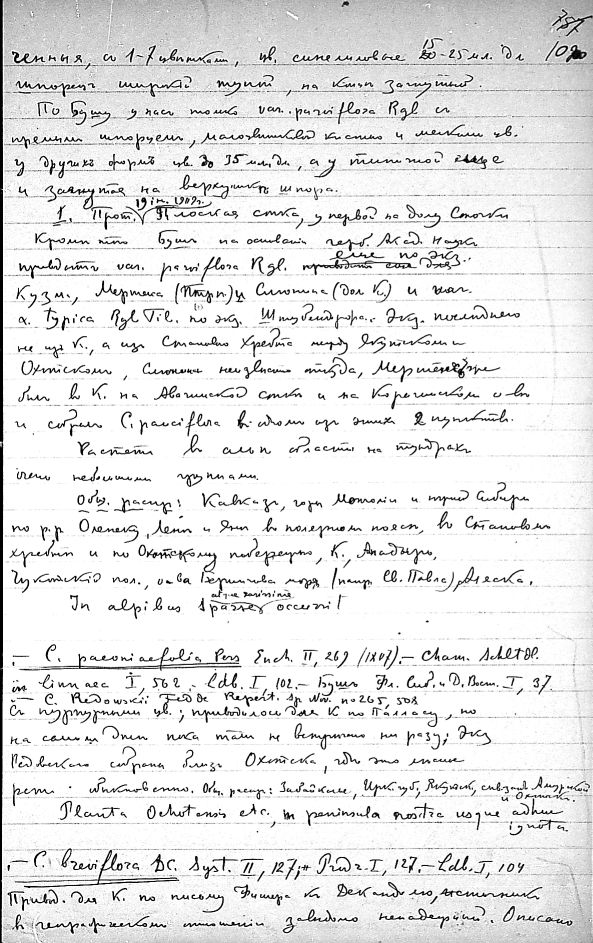 787
1090
ченныя, со 1-7 цветками, цв. синелиловые 15-25 мл. дл
шпорец широкий тупой, на конце загнутый.
По Бушу у нас только var. parviflora Rgl с
прямым шпорцем, и мелкими цв.
у других форм цв. до 35 мл дл, а у типичной еще
и загнутая на верхушке шпора.
1. Прот. 19 1909г. Плоская сопка, у первой на долу
Кроме того Буш на основании герб. Акад. Наук
приводит var. parviflora Rgl. еще по экз.
Кузм., Мертенса и (для К.) и var.
Rgl Til. по экз. Экз. последнего
не из К., а из Станового Хребта между Якутском и
Охотском, неизвестно откуда, Мертенс же
был в К. на Авачинской сопке и на Карагинском о-ве
и собрал C. pauciflora в одном из этих 2 пунктов.
Растет в альп области на тундрах
очень небольшими группами.
Общ. распр: Кавказ, горы Монголии и Сибири
по р.р Оленеку, Лене и Яне в полярном поясе, в Становом
хребте и по Охотскому побережью, К., Анадырь,
Чукотский пол., о-ва Берингова моря (напр. Св. Павла), Аляска.
In alpibus sparse atque rarissime occurrit!
.— C. paeoniaefolia Pers Ench. II, 269 (1807).— Cham. Schltdl.
in Linnaea I, 562. Ldb. I, 102.— Бушъ Фл. Сиб. и Д. Вост. I, 37.
— C. Redowskii Fedde Repert. Sp. Nov. no 265, 508
С пурпурными цв.; приводилось для К по Палласу, но
на самом деле пока там не встречено ни разу; экз
Редовского собрана близ Охотска, где это
обыкновенно. Общ. распр: Забайкалье, Ирк губ, Якутск, Амурской
и Охотск.
Planta Ochotensis etc., in peninsula nostra usque adhuc
ignota.
.— C. breviflora DC. Syst. II, 127; Prdr. I, 127.— Ldb. I, 104
Привод. для К. по письму Фишера к Декандолю, источник
в географическом отношении заведомо ненадежный. Описано